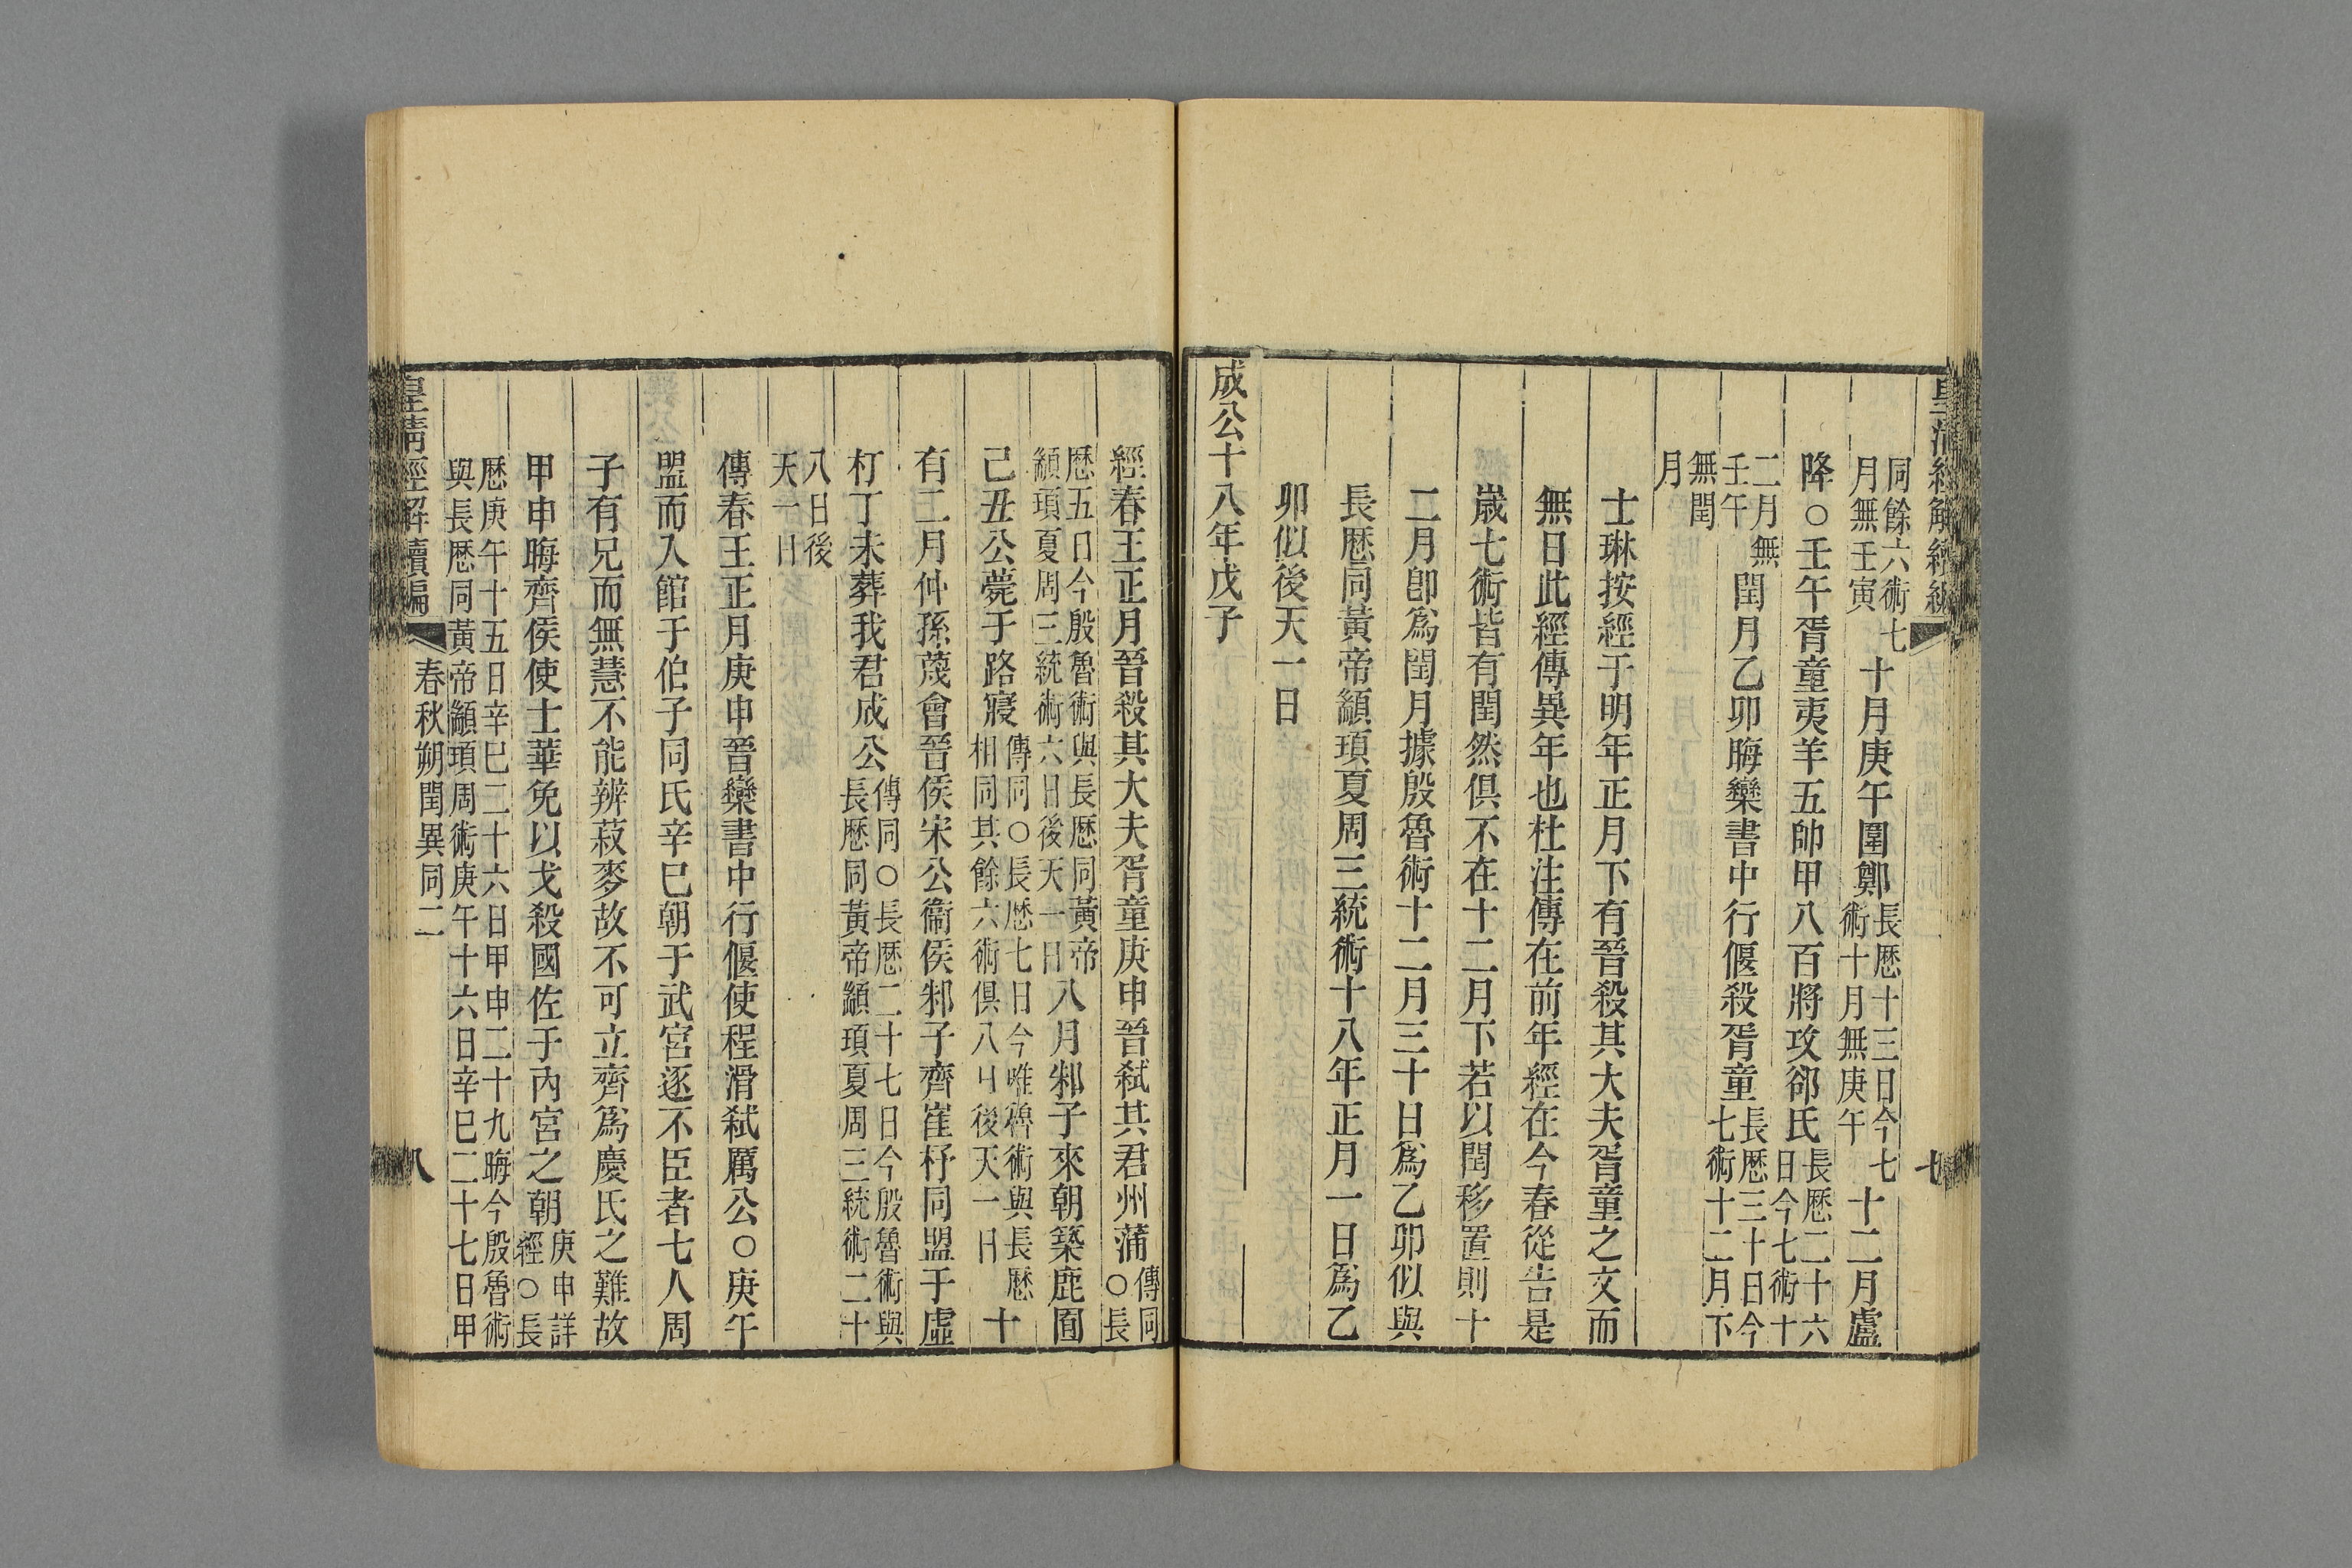 皇清經解續編
七
同餘六術七月無壬寅十月庚午圍鄭長厯十三日今七術十月無庚午十二月盧
降○壬午胥童夷羊五帥甲八百將攻郤氏長厯二十六日今七術十
二月無壬午閏月乙卯晦欒書中行偃殺胥童長厯三十日今七術十二月下
無閏月
士琳按經于明年正月下有晉殺其大夫胥童之文而
無日此經傳異年也杜注傳在前年經在今春從告是
歲七術皆有閏然俱不在十二月下若以閏移置則十
二月卽爲閏月據殷魯術十二月三十日爲乙卯似與
長厯同黃帝顓頊夏周三統術十八年正月一日爲乙
卯似後天一日
成公十八年戊子
經春王正月晉殺其大夫胥童庚申晉弒其君州蒲傳同○長
厯五日今殷魯術與長厯同黃帝顓頊夏周三統術六日後天一日八月邾子來朝築鹿囿
己丑公薨于路寢傳同○長厯七日今唯魯術與長厯相同其餘六術俱八日後天一日十
有二月仲孫蔑會晉侯宋公衞侯邾子齊崔杼同盟于虛
朾丁未葬我君成公傳同○長厯二十七日今殷魯術與長厯同黃帝顓頊夏周三統術二十
八日後天一日
傳春王正月庚申晉欒書中行偃使程滑弒厲公○庚午
盟而入館于伯子同氏辛巳朝于武宮逐不臣者七人周
子有兄而無慧不能辨菽麥故不可立齊爲慶氏之難故
甲申晦齊侯使士華免以戈殺國佐于內宮之朝庚申詳經○長
厯庚午十五日辛巳二十六日甲申二十九晦今殷魯術與長厯同黃帝顓頊周術庚午十六日辛巳二十七日甲
皇清經解續編
春秋朔閏異同二
八